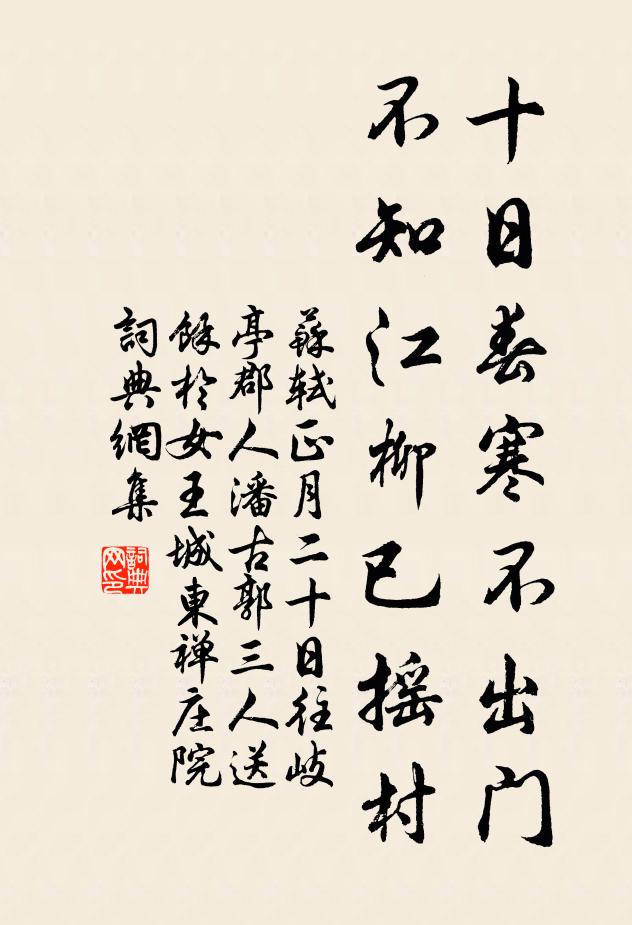 十日春寒不出門
不知江柳已摇村
蘇軾正月二十日往岐
亭郡人潘古郭三人送
餘於女王城東禅庄院
詞典網集
詞典网印